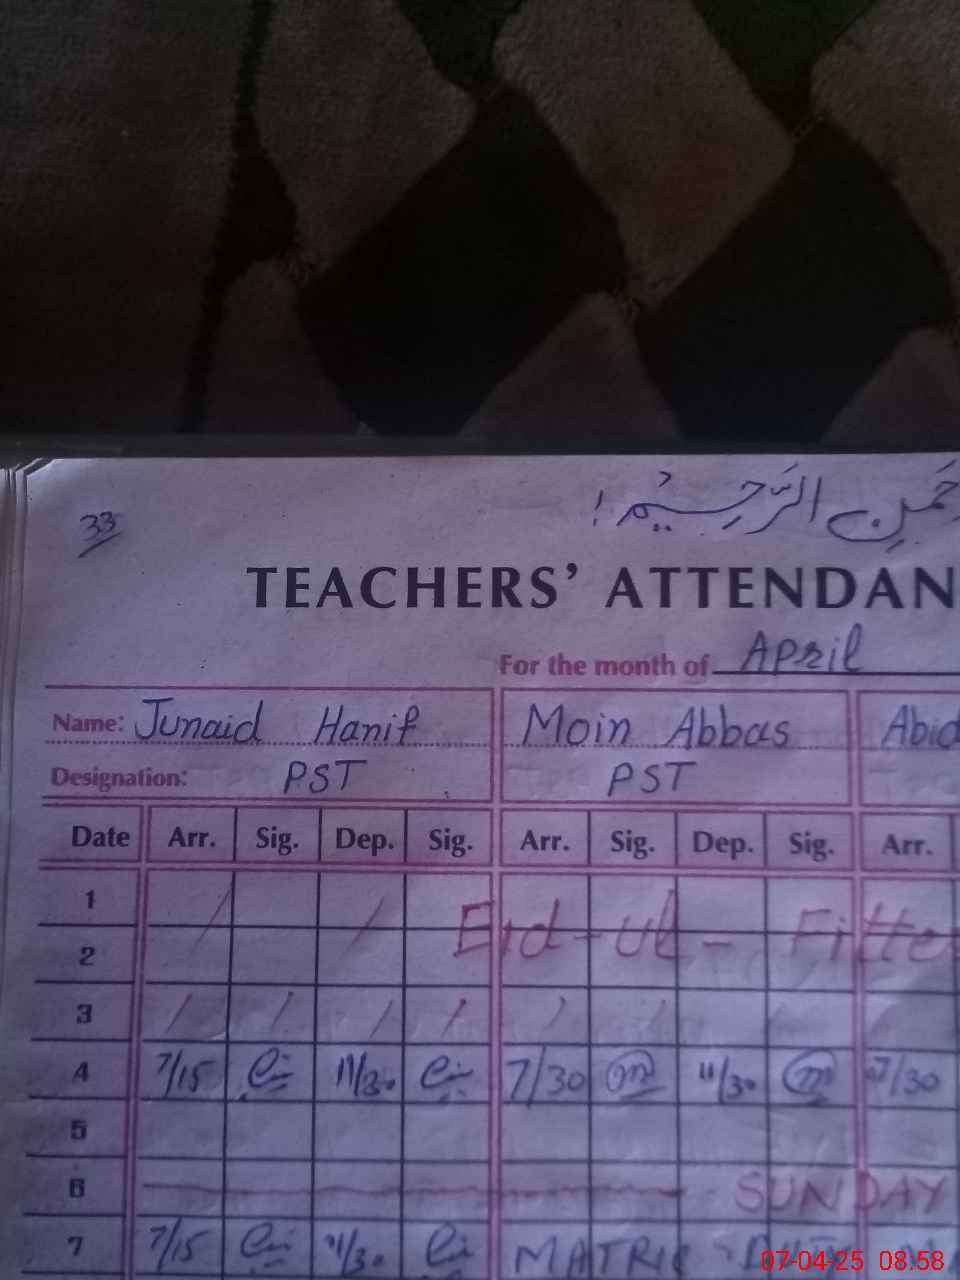 33
حمٰنِ الرَّحِيْمِ!
TEACHERS' ATTENDAN
For the month of April
Name: Junaid Hanif Moin Abbas Abid
Designation: PST PST
Date Arr. Sig. Dep. Sig. Arr. Sig. Dep. Sig. Arr.
1
Eid-ul-Fitte
2
3
4 7/15 11/30 7/30 11/30 7/30
5
6 SUNDAY
7 7/15 11/30 MATRIC
07-04-25 08:58